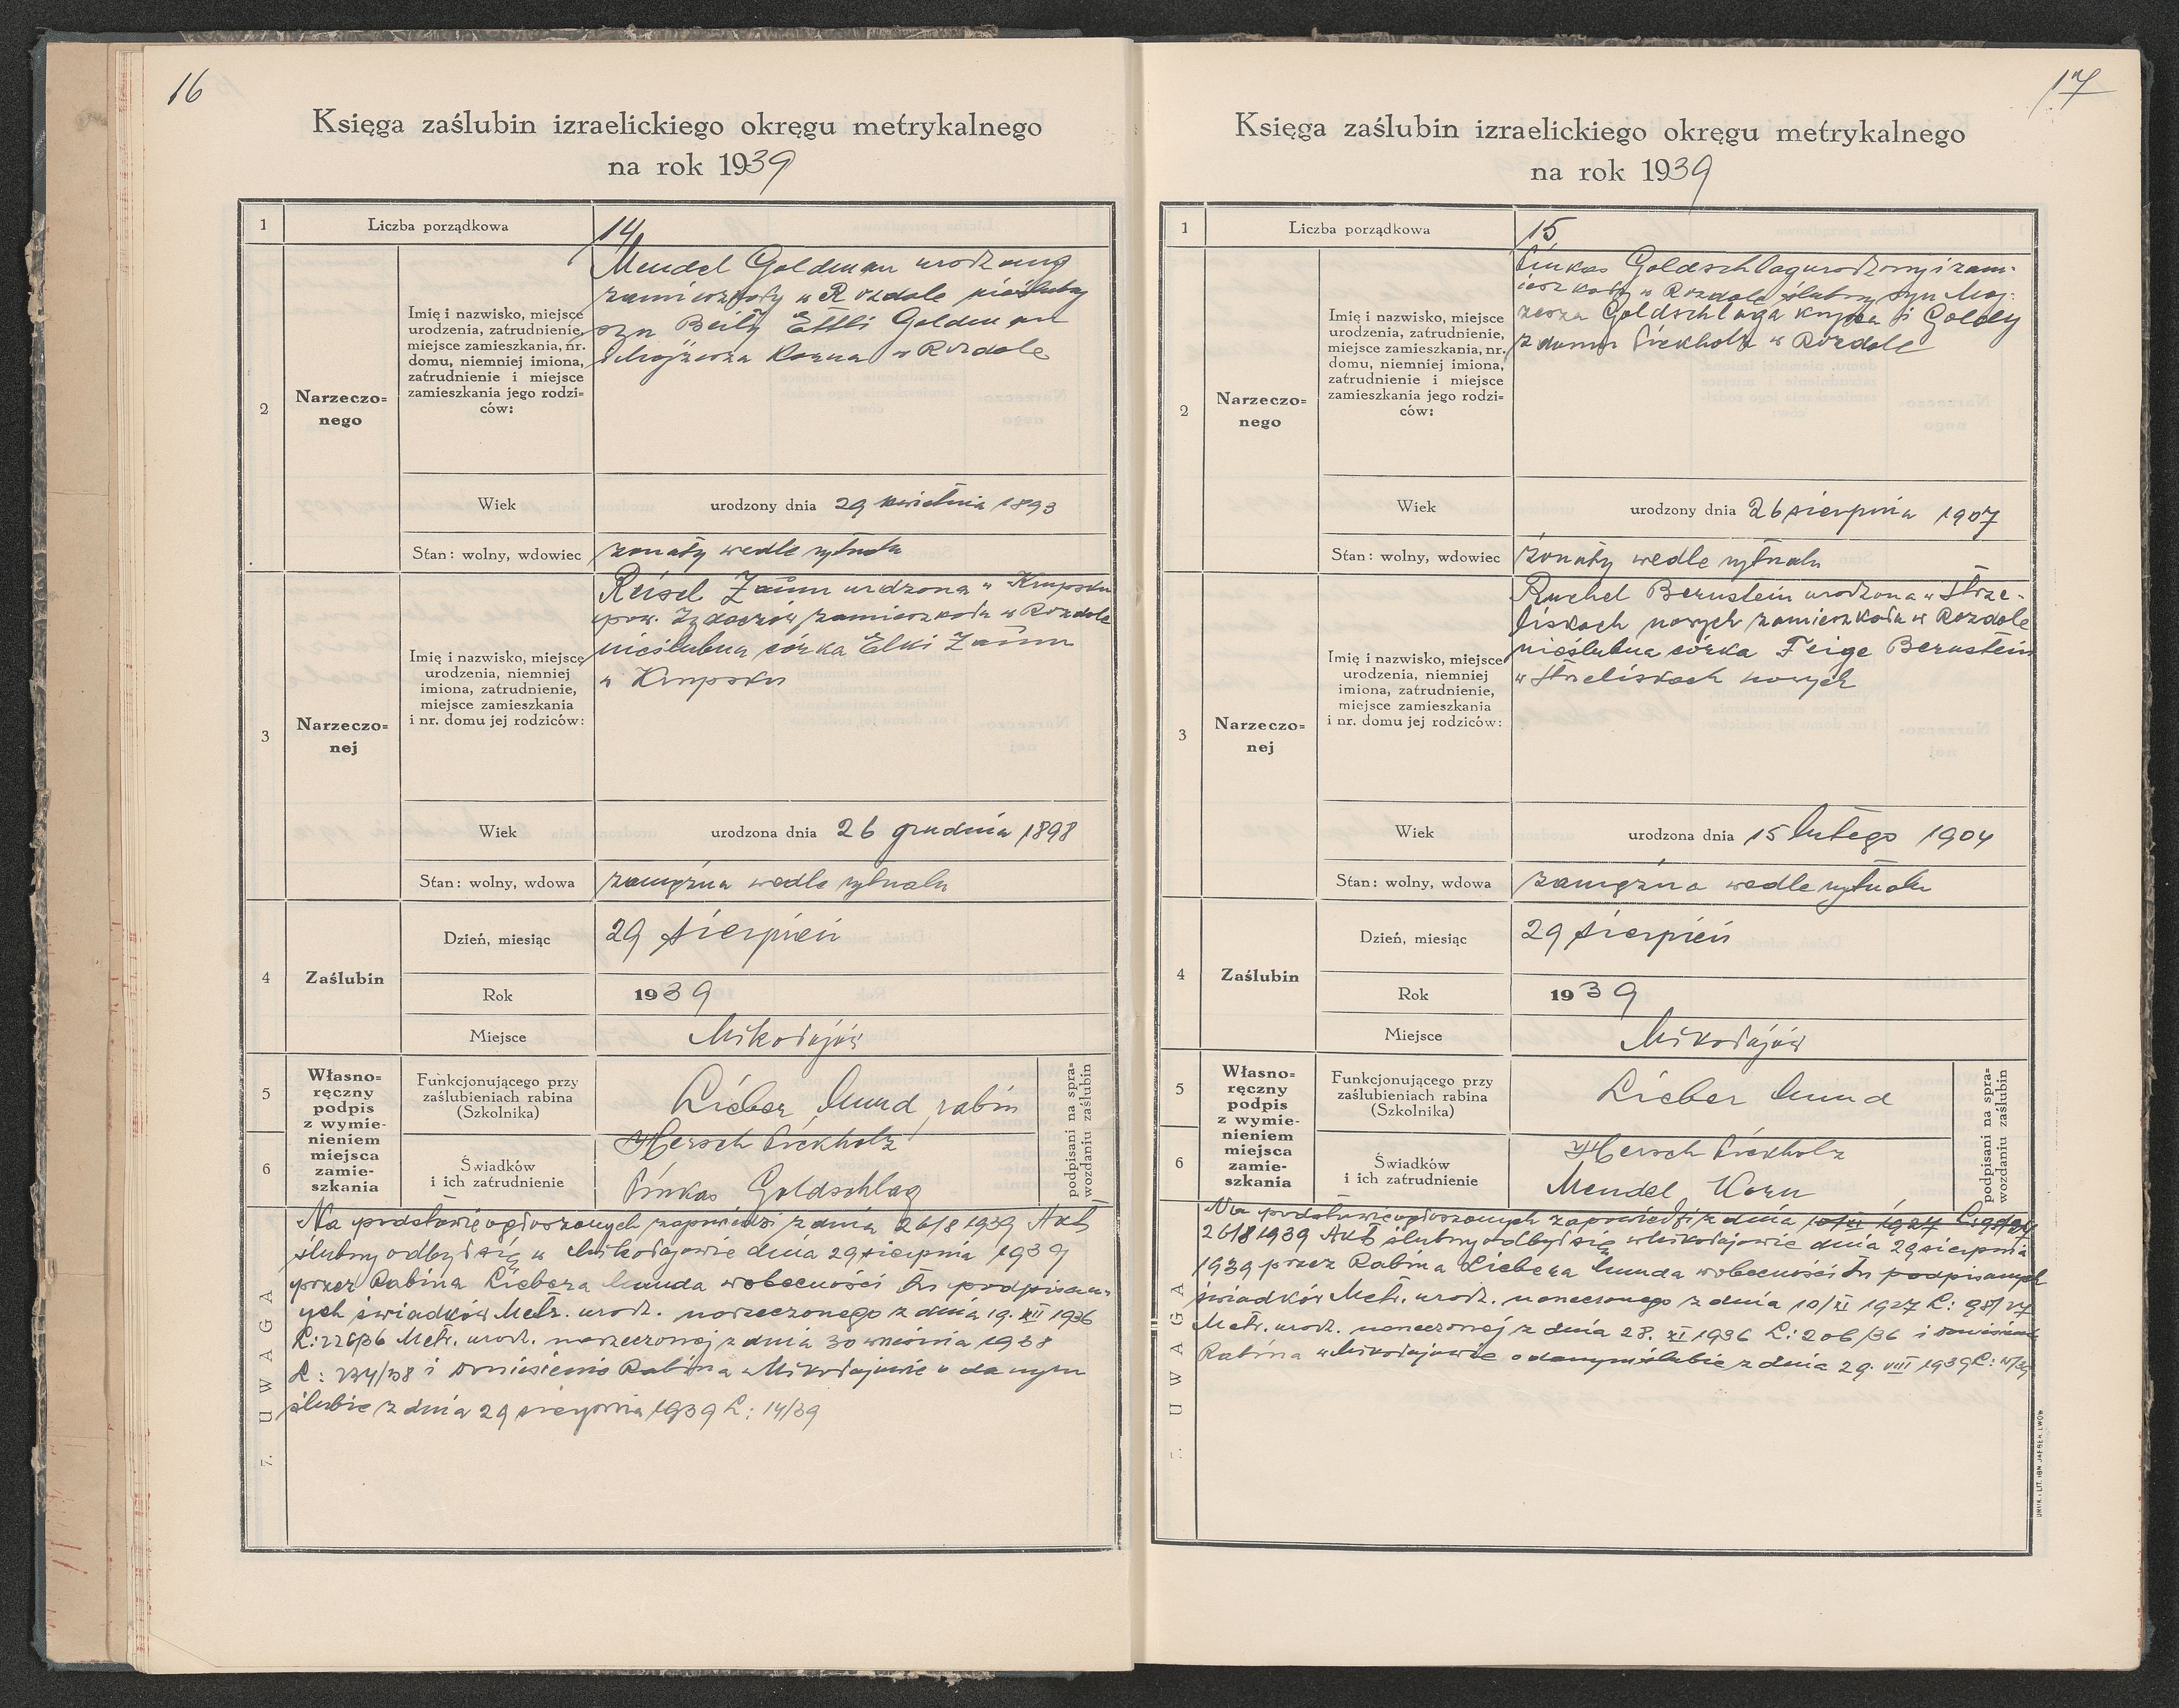 16
Księga zaślubin izraelickiego okręgu metrykalnego
na rok 1939
1
Liczba porządkowa
14
2
Narzeczo=
nego
Imię i nazwisko, miejsce
urodzenia, zatrudnienie,
miejsce zamieszkania, nr.
domu, niemniej imiona,
zatrudnienie i miejsce
zamieszkania jego rodzi=
ców:
Mendel Goldman urodzony
zamieszkały w Rozdole nieślubny
syn Beily Ettli Goldman
i Mojżesza Korna w Rozdole
Wiek
urodzony dnia 29 kwietnia 1893
Stan: wolny, wdowiec
żonaty wedle rytuału
3
Narzeczo=
nej
Imię i nazwisko, miejsce
urodzenia, niemniej
imiona, zatrudnienie,
miejsce zamieszkania
i nr. domu jej rodziców:
Reisel Zaum urodzona w Krupsku
pow. Żydaczów zamieszkała w Rozdole
nieślubna córka Elki Zaum
w Krupsku
Wiek
urodzona dnia 26 grudnia 1898
Stan: wolny, wdowa
zamężna wedle rytuału
4
Zaślubin
Dzień, miesiąc
29 sierpień
Rok
1939
Miejsce
Mikołajów
5
6
Własno=
ręczny
podpis
z wymie=
nieniem
miejsca
zamie=
szkania
Funkcjonującego przy
zaślubieniach rabina
(Szkolnika)
Lieber Mund rabin
Świadków
i ich zatrudnienie
Hersch Eickholz
Pinkas Goldschlag
podpisani na spra=
wozdaniu zaślubin
7. UWAGA
Na podstawie ogłoszonych zapowiedzi z dnia 26/8 1939 Akt
ślubny odbył się w Mikołajowie dnia 29 sierpnia 1939
przez Rabina Liebera Munda w obecności tu podpisan=
ych świadków Metr. urodz. narzeczonego z dnia 19. XII 1936
L: 226/36 Metr. urodz. narzeczonej z dnia 30 września 1938
L: 234/38 i doniesienia Rabina w Mikołajowie o danym
ślubie z dnia 29 sierpnia 1939 L: 14/39
17
Księga zaślubin izraelickiego okręgu metrykalnego
na rok 1939
1
Liczba porządkowa
15
2
Narzeczo=
nego
Imię i nazwisko, miejsce
urodzenia, zatrudnienie,
miejsce zamieszkania, nr.
domu, niemniej imiona,
zatrudnienie i miejsce
zamieszkania jego rodzi=
ców:
Pinkas Goldschlag urodzony i zam-
ieszkały w Rozdole ślubny syn Moj-
żesza Goldschlaga kupca i Goldy
z domu Eickholz w Rozdole
Wiek
urodzony dnia 26 sierpnia 1907
Stan: wolny, wdowiec
żonaty wedle rytuału
3
Narzeczo=
nej
Imię i nazwisko, miejsce
urodzenia, niemniej
imiona, zatrudnienie,
miejsce zamieszkania
i nr. domu jej rodziców:
Ruchel Bernstein urodzona w Strze-
liskach nowych zamieszkała w Rozdole
nieślubna córka Feige Bernstein
w Strzeliskach nowych
Wiek
urodzona dnia 15 lutego 1904
Stan: wolny, wdowa
zamężna wedle rytuału
4
Zaślubin
Dzień, miesiąc
29 sierpień
Rok
1939
Miejsce
Mikołajów
5
6
Własno=
ręczny
podpis
z wymie=
nieniem
miejsca
zamie=
szkania
Funkcjonującego przy
zaślubieniach rabina
(Szkolnika)
Lieber Mund
Świadków
i ich zatrudnienie
Hersch Eickholz
Mendel Korn
podpisani na spra=
wozdaniu zaślubin
7. UWAGA
Na podstawie ogłoszonych zapowiedzi z dnia 10/XI 1927 L: 98/27
26/8 1939 Akt ślubny odbył się w Mikołajowie dnia 29 sierpnia
1939 przez Rabina Liebera Munda w obecności tu podpisanych
świadków Metr. urodz. narzeczonego z dnia 10/XI 1927 L: 98/27
Metr. urodz. narzeczonej z dnia 28. XI 1936 L: 206/36 i doniesienia
Rabina w Mikołajowie o danym ślubie z dnia 29. VIII 1939 L: 15/39
DRUK. i LIT. IGN. JAEGER, LWÓW